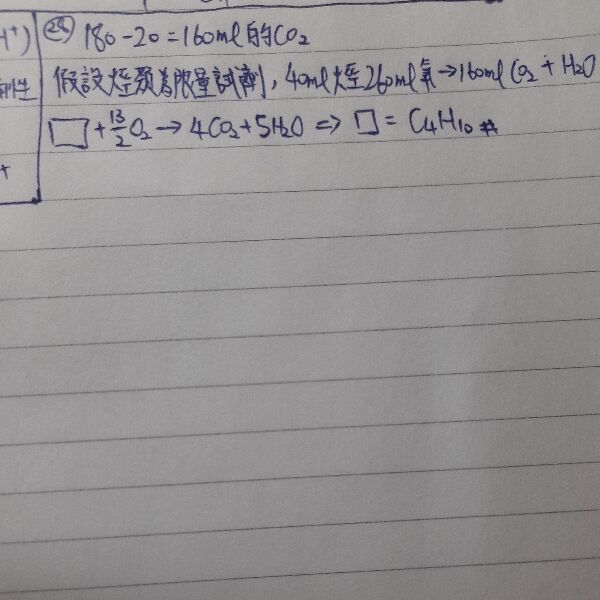 H⁺)
㉘ 180-20=160ml的CO₂
假設烴類為限量試劑, 40ml烴260ml氧→160ml CO₂+H₂O
□+13/2 O₂→4CO₂+5H₂O⇒□=C₄H₁₀ #
+